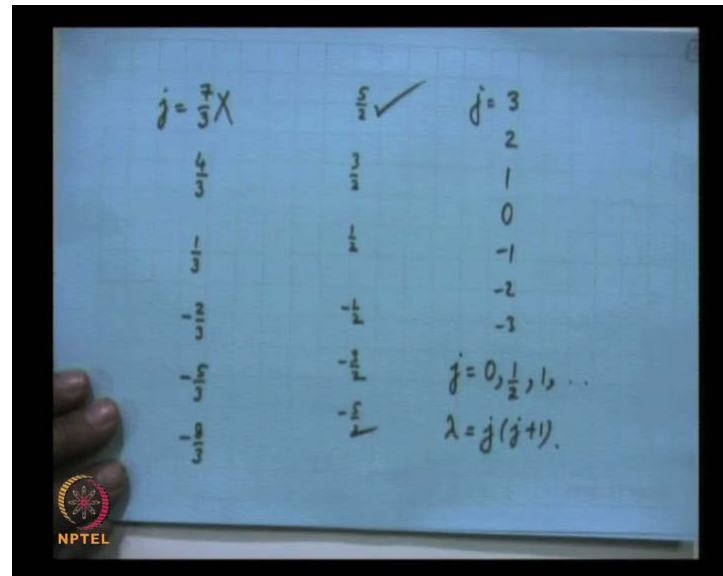 j = 7/3 X
4/3
1/3
-2/3
-5/3
-8/3
5/2 ✓
3/2
1/2
-1/2
-3/2
-5/2
j = 3
2
1
0
-1
-2
-3
j = 0, 1/2, 1, ..
λ = j(j+1).
NPTEL